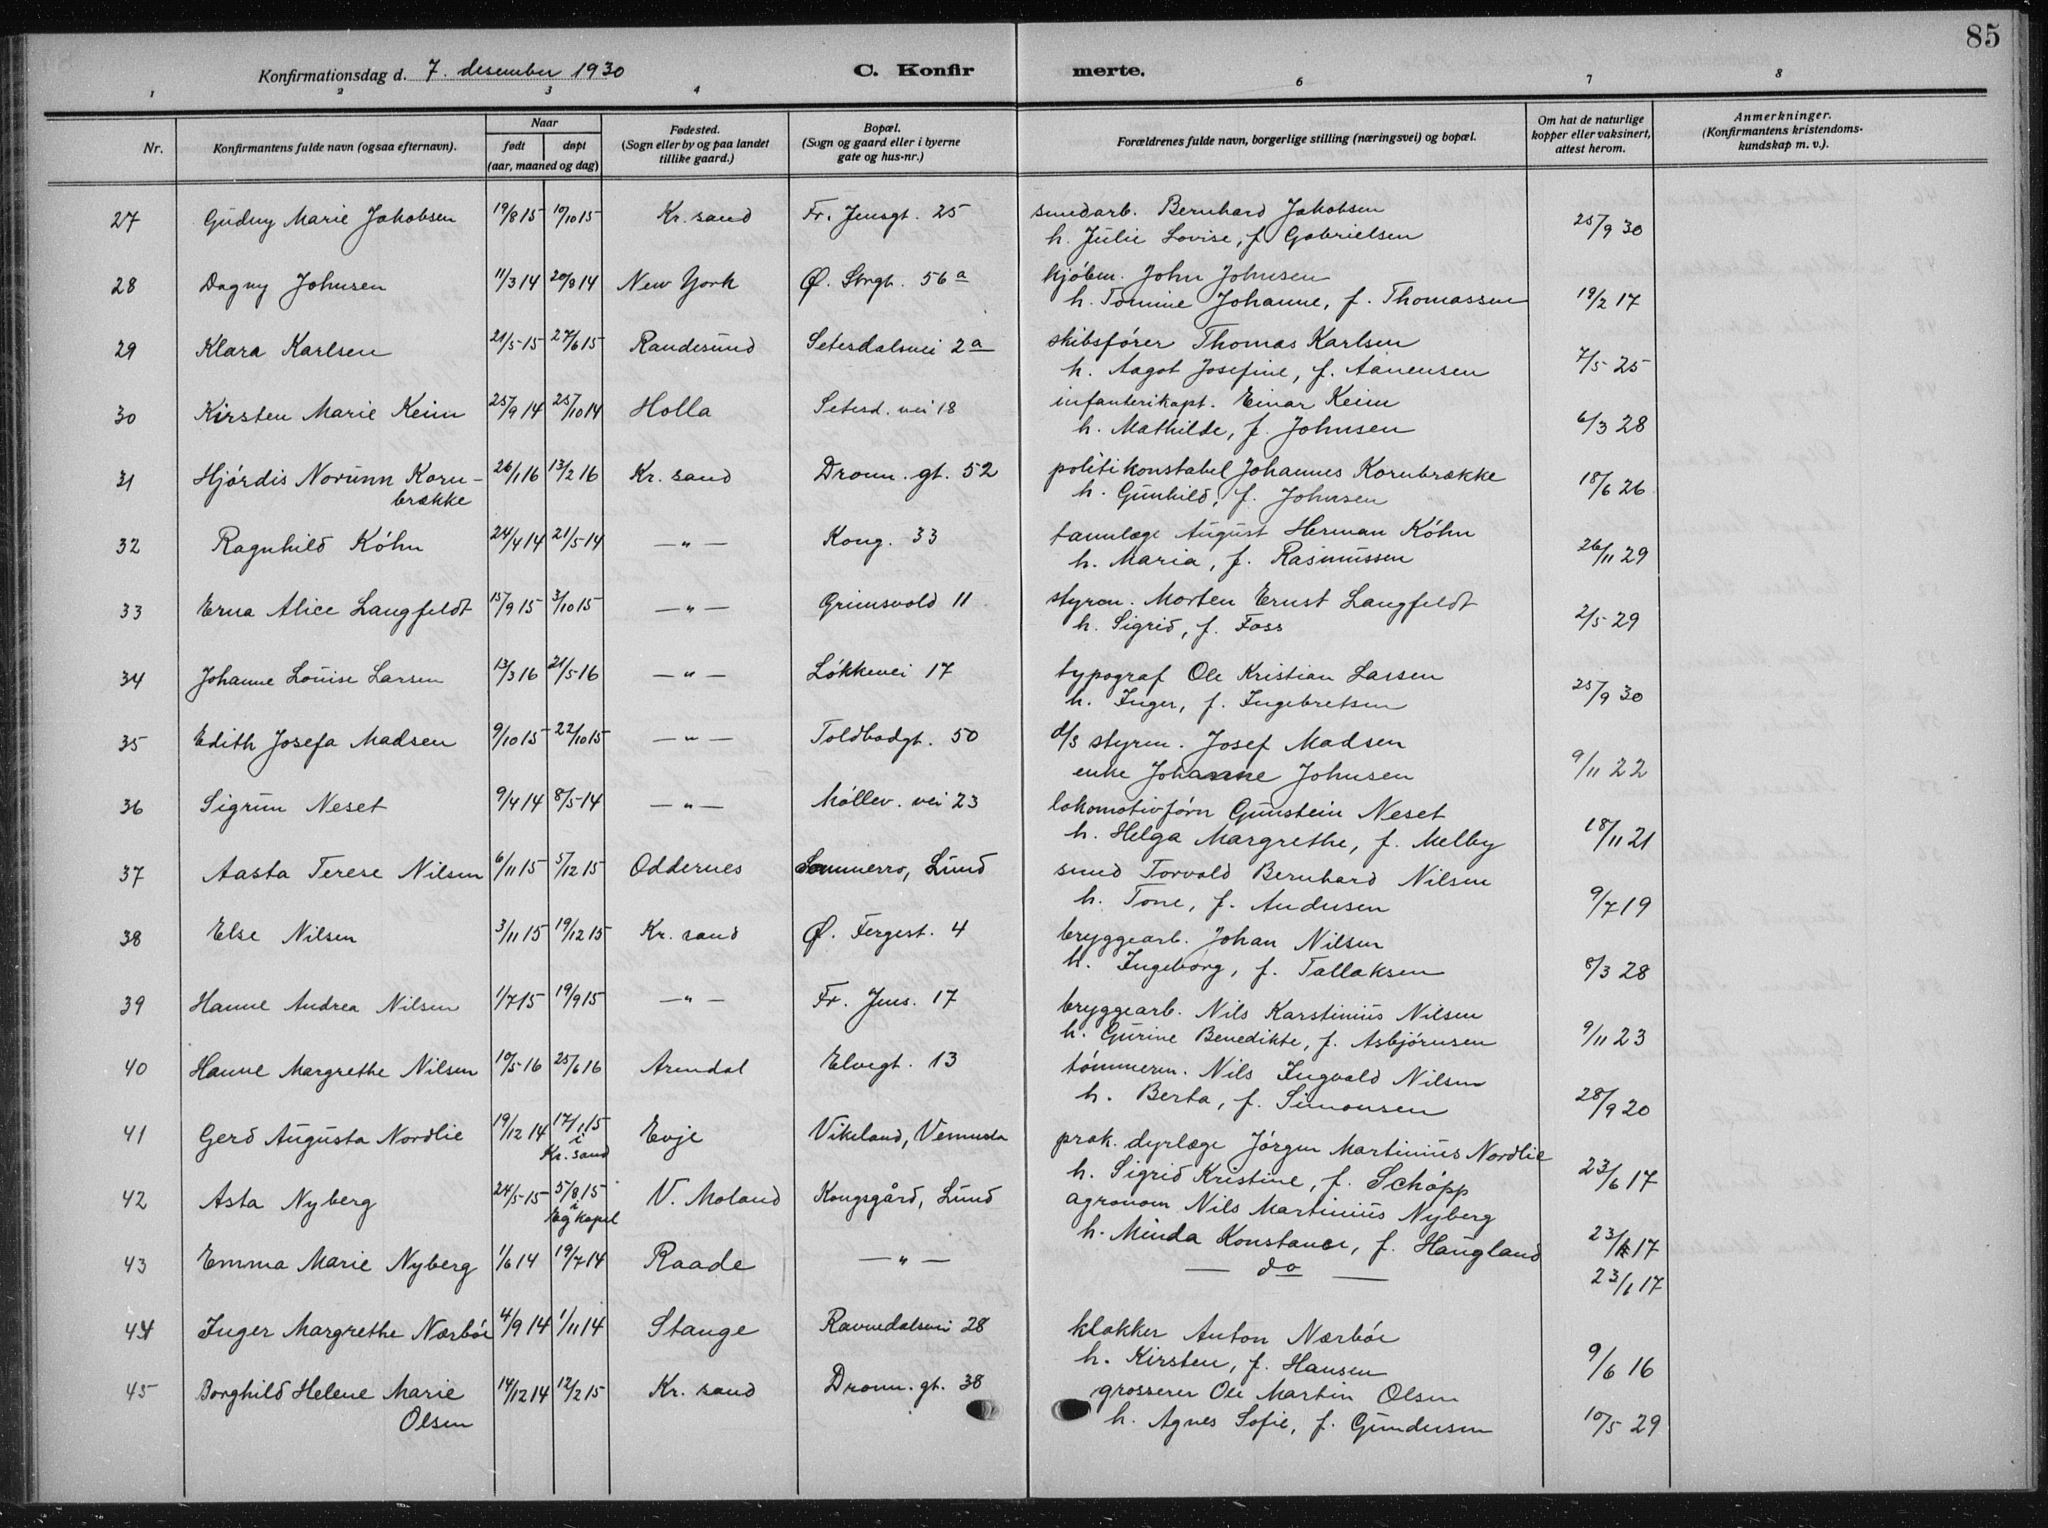 85
Konfirmationsdag d. 7. desember 1930 C. Konfir merte.
1 2 3 4 6 7 8
Nr. Konfirmantens fulde navn (ogsaa efternavn). Naar født døpt (aar, maaned og dag) Fødested. (Sogn eller by og paa landet tillike gaard.) Bopæl. (Sogn og gaard eller i byerne gate og hus-nr.) Forældrenes fulde navn, borgerlige stilling (næringsvei) og bopæl. Om hat de naturlige kopper eller vaksinert, attest herom. Anmerkninger. (Konfirmantens kristendoms-kundskap m. v.).
27 Gudny Marie Jakobsen 19/8 15 10/10 15 Kr. sand Fr. Jensgt. 25 smedarb. Bernhard Jakobsen
h. Julie Lovise, f. Gabrielsen 25/9 30
28 Dagny Johnsen 11/3 14 20/9 14 New York Ø. Strgt. 56 a kjøbm. John Johnsen
h. Tomine Johanne, f. Thomassen 19/2 17
29 Klara Karlsen 21/5 15 27/6 15 Randesund Setesdalsvei 2a skibsfører Thomas Karlsen
h. Aagot Josefine, f. Aanensen 7/5 25
30 Kirsten Marie Keim 25/9 14 25/10 14 Holla Setesd. vei 18 infanterikapt. Einar Keim
h. Mathilde, f. Johnsen 6/3 28
31 Hjørdis Norunn Korn- 26/1 16 13/2 16 Kr. sand Dronn. gt. 52 politikonstabel Johannes Kornbrække
brække h. Gunhild, f. Johnsen 18/6 26
32 Ragnhild Köhn 24/4 14 21/5 14 — „ — Kong. 33 tannlæge August Herman Köhn
h. Maria, f. Rasmussen 26/11 29
33 Erna Alice Langfeldt 15/9 15 3/10 15 — „ — Grimsvold 11 styrm. Morten Ernst Langfeldt
h. Sigrid, f. Foss 2/5 29
34 Johanne Louise Larsen 13/3 16 21/5 16 — „ — Løkkevei 17 typograf Ole Kristian Larsen
h. Inger, f. Ingebretsen 25/9 30
35 Edith Josefa Madsen 9/10 15 22/10 15 — „ — Toldbodgt. 50 d/s styrm. Josef Madsen
enke Johanne Johnsen 9/11 22
36 Sigrun Neset 9/4 14 8/5 14 — „ — Møllev. vei 23 lokomotivførn Gunstein Neset
h. Helga Margrethe, f. Melby 18/11 21
37 Aasta Terese Nilsen 6/11 15 5/12 15 Oddernes Sommerro, Lund smed Torvald Bernhard Nilsen
h. Tone, f. Andersen 9/7 19
38 Else Nilsen 3/11 15 19/12 15 Kr. sand Ø. Fergest. 4 bryggearb. Johan Nilsen
h. Ingeborg, f. Tallaksen 8/3 28
39 Hanne Andrea Nilsen 1/7 15 19/9 15 — „ — Fr. Jens. 17 bryggearb. Nils Karstinius Nilsen
h. Gurine Benedikte, f. Asbjørnsen 9/11 23
40 Hanne Margrethe Nilsen 10/5 16 25/6 16 Arendal Elvegt. 13 tømmerm. Nils Ingvald Nilsen
h. Berta, f. Simonsen 28/9 20
41 Gerd Augusta Nordlie 19/12 14 17/1 15 i Kr. sand Evje Vikeland, Vennesla prak. dyrlæge Jørgen Martinius Nordlie
h. Sigrid Kristine, f. Schöpp 23/6 17
42 Asta Nyberg 24/5 15 5/8 15 i Eg kapel V. Moland Kongsgård, Lund agronom Nils Martinius Nyberg
h. Minda Konstance, f. Haugland 23/1 17
43 Emma Marie Nyberg 1/6 14 19/7 14 Raade — „ — — do — 23/1 17
44 Inger Margrethe Nærbøe 4/9 14 1/11 14 Stange Ravnedalsvei 28 klokker Anton Nærbøe
h. Kirsten, f. Hansen 9/6 16
45 Borghild Helene Marie 14/12 14 12/2 15 Kr. sand Dronn. gt. 38 grosserer Ole Martin Olsen
Olsen h. Agnes Sofie, f. Gundersen 10/5 29